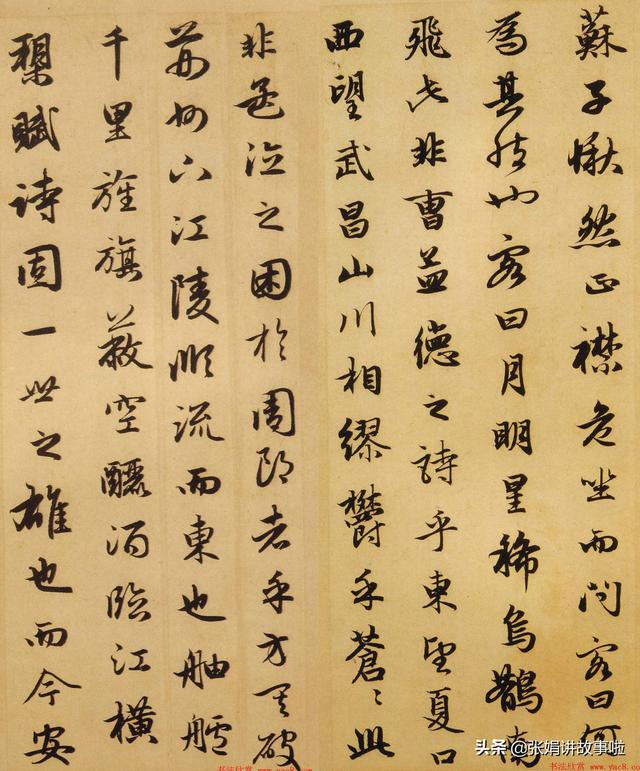 蘇子愀然正襟危坐而問客曰何
為其然也客曰月明星稀烏鵲南
飛此非曹孟德之詩乎東望夏口
西望武昌山川相繆鬱乎蒼〻此
非孟德之困於周郎者乎方其破
荊州下江陵順流而東也舳艫
千里旌旗蔽空釃酒臨江橫
槊賦詩固一世之雄也而今安
头条 @张娟讲故事啦
书法欣赏 www.yac8.com